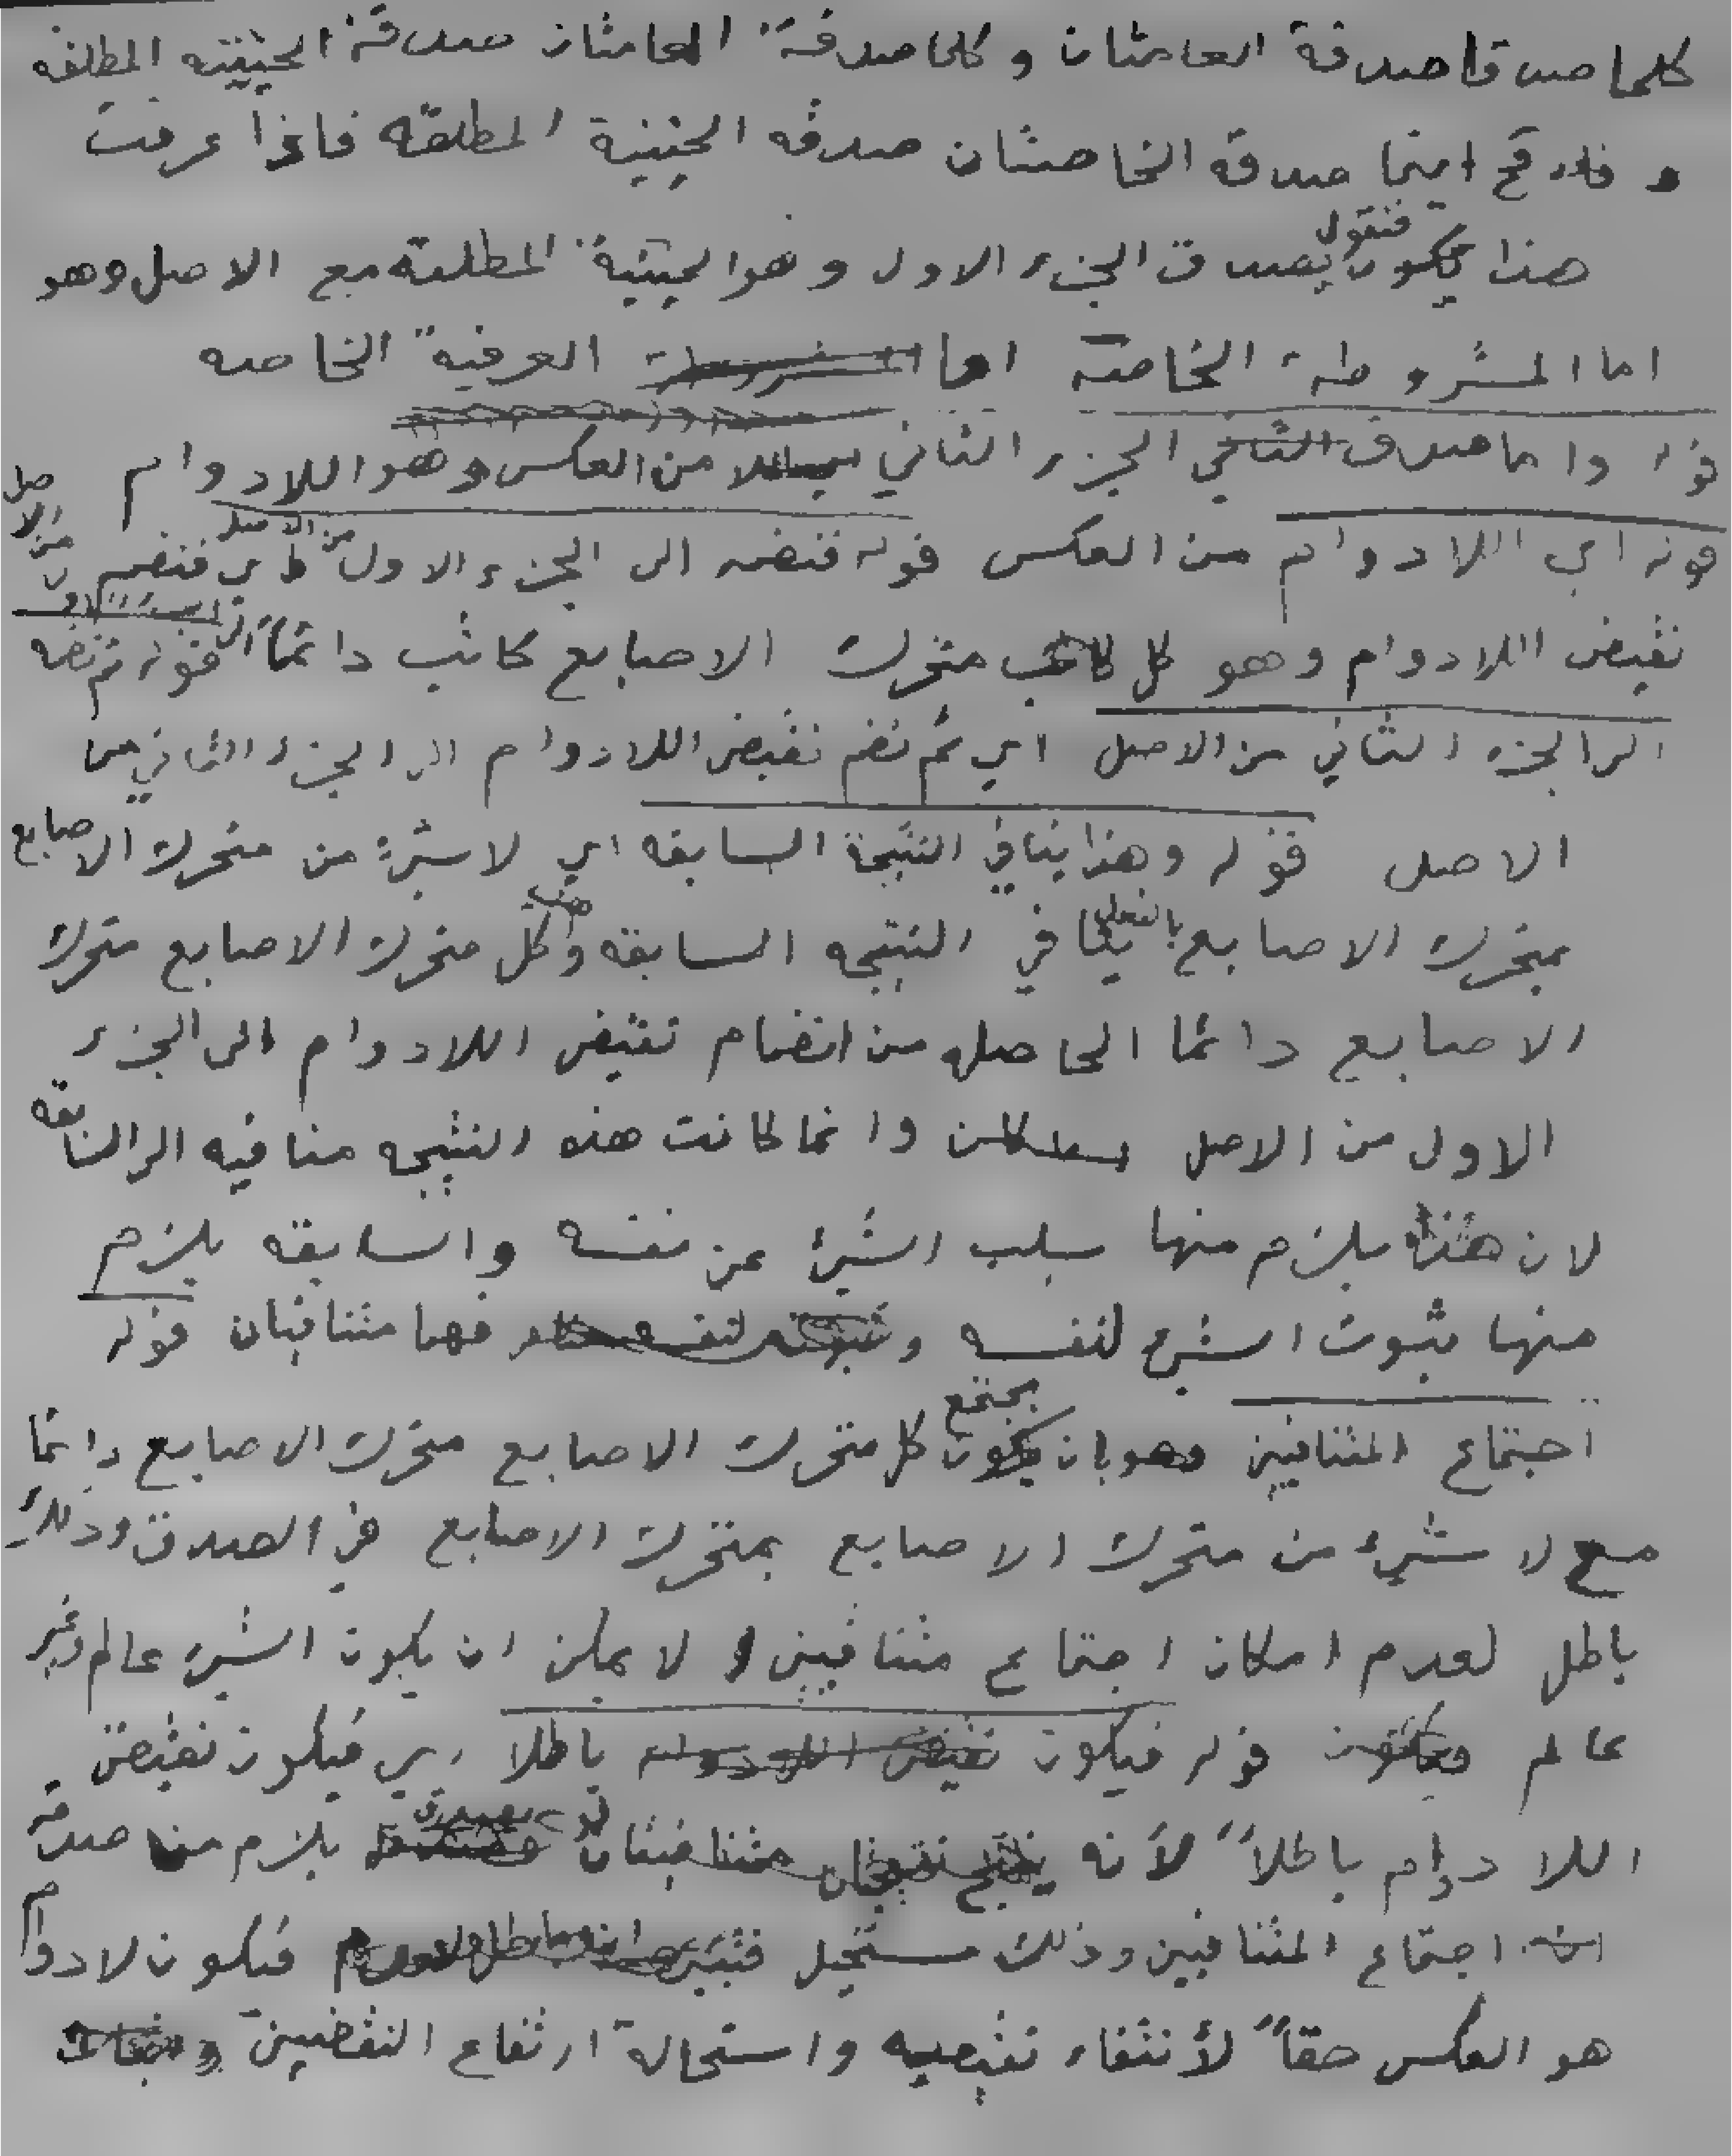 كلما صدقا صدقة العامتان وكلما صدقة العامتان صدقة الحينيه المطلقه
فاذا عرفت المطلقه الحينية صدقه الخاصتان صدقه
هذا فنقول يصدق الجزء الاول وهو الحينية المطلقة مع الاصل وهو
اما المشروطة الخاصة اما العرفية الخاصه
قوله واما صدق الجزء الثاني من العكس وهو اللادوام
قوله اي اللادوام من العكس قوله فنضمه الى الجزء الاول من الاصل اي فنضم
نقيض اللادوام وهو كل متحرك الاصابع كاتب دائماً قوله ثم نضمه
الى الجزء الثاني من الاصل اي ثم نضم نقيض اللادوام الى الجزء الثاني من
الاصل قوله وهذا ينافي النتيجة السابقه اي لا شيء من متحرك الاصابع
بمتحرك الاصابع بالفعل ينافي النتيجه السابقه وهي كل متحرك الاصابع متحرك
الاصابع دائما الحاصله من انضمام نقيض اللادوام الى الجزء
الاول من الاصل وانما كانت هذه النتيجه منافيه الى السابقه
لان هذه يلزم منها سلب الشيء عن نفسه والسابقه يلزم
منها ثبوت الشيء لنفسه فهما متنافيان قوله
اجتماع المتنافيين وهو بان يجتمع كل متحرك الاصابع متحرك الاصابع دائما
مع لا شيء من متحرك الاصابع بمتحرك الاصابع في الصدق وذلك
باطل لعدم امكان اجتماع متنافيين ولا يمكن ان يكون الشيء عالم وغير
عالم قوله فيكون باطلا اي فيكون نقيض
اللادوام باطلاً لأنه يلزم من صدقه
اجتماع المتنافيين وذلك مستحيل فيكون لادوام
هو العكس حقاً لأنتفاء نقيضيه واستحالة ارتفاع النقضيين